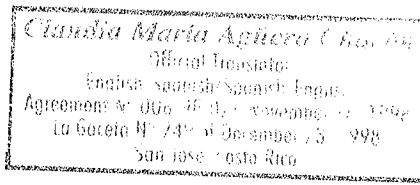 Claudia María Agüero
Official Translator
English Spanish/Spanish English
Agreement Nº 006 November 1998
La Gaceta Nº 249 of December 23 1998
San José Costa Rica